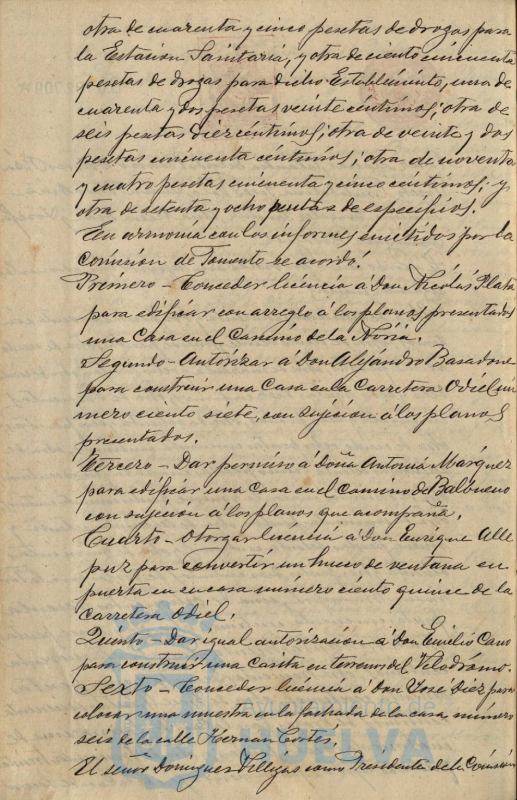 otra de cuarenta y cinco pesetas de drogas para
la Estación Sanitaria, y otra de ciento cincuenta
pesetas de drogas para dicho Establecimiento, una de
cuarenta y dos pesetas veinte céntimos; otra de
seis pesetas diez céntimos; otra de veinte y dos
pesetas cincuenta céntimos; otra de noventa
y cuatro pesetas cincuenta y cinco céntimos; y
otra de setenta y ocho pesetas de específicos.
En armonía con los informes emitidos por la
Comisión de Fomento se acordó:
Primero - Conceder licencia á Don Nicolás Plata
para edificar con arreglo á los planos presentados
una casa en el Camino de la Noria.
Segundo - Autorizar á Don Alejandro Basadone
para construir una casa en la Carretera Odiel nú
mero ciento siete, con sujeción á los planos
presentados.
Tercero - Dar permiso á Doña Antonia Márquez
para edificar una casa en el Camino de Balbueno
con sujeción á los planos que acompaña.
Cuarto - Otorgar licencia á Don Enrique Alle
puz para convertir un hueco de ventana en
puerta en su casa número ciento quince de la
Carretera Odiel.
Quinto - Dar igual autorización á Don Emilio Cano
para construir una casita en terrenos del Velódromo.
Sexto - Conceder licencia á Don José Diez para
colocar una muestra en la fachada de la casa número
seis de la calle Hernan Cortes.
El señor Dominguez Villegas como Presidente de la Comisión
Ayuntamiento de
HUELVA